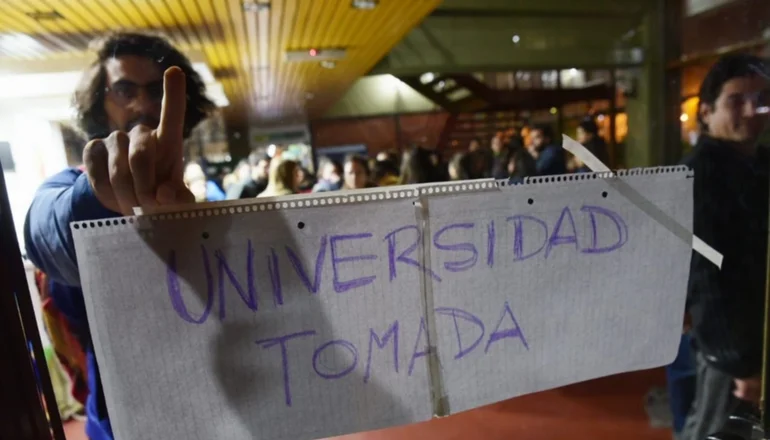 UNIVERSIDAD
TOMADA